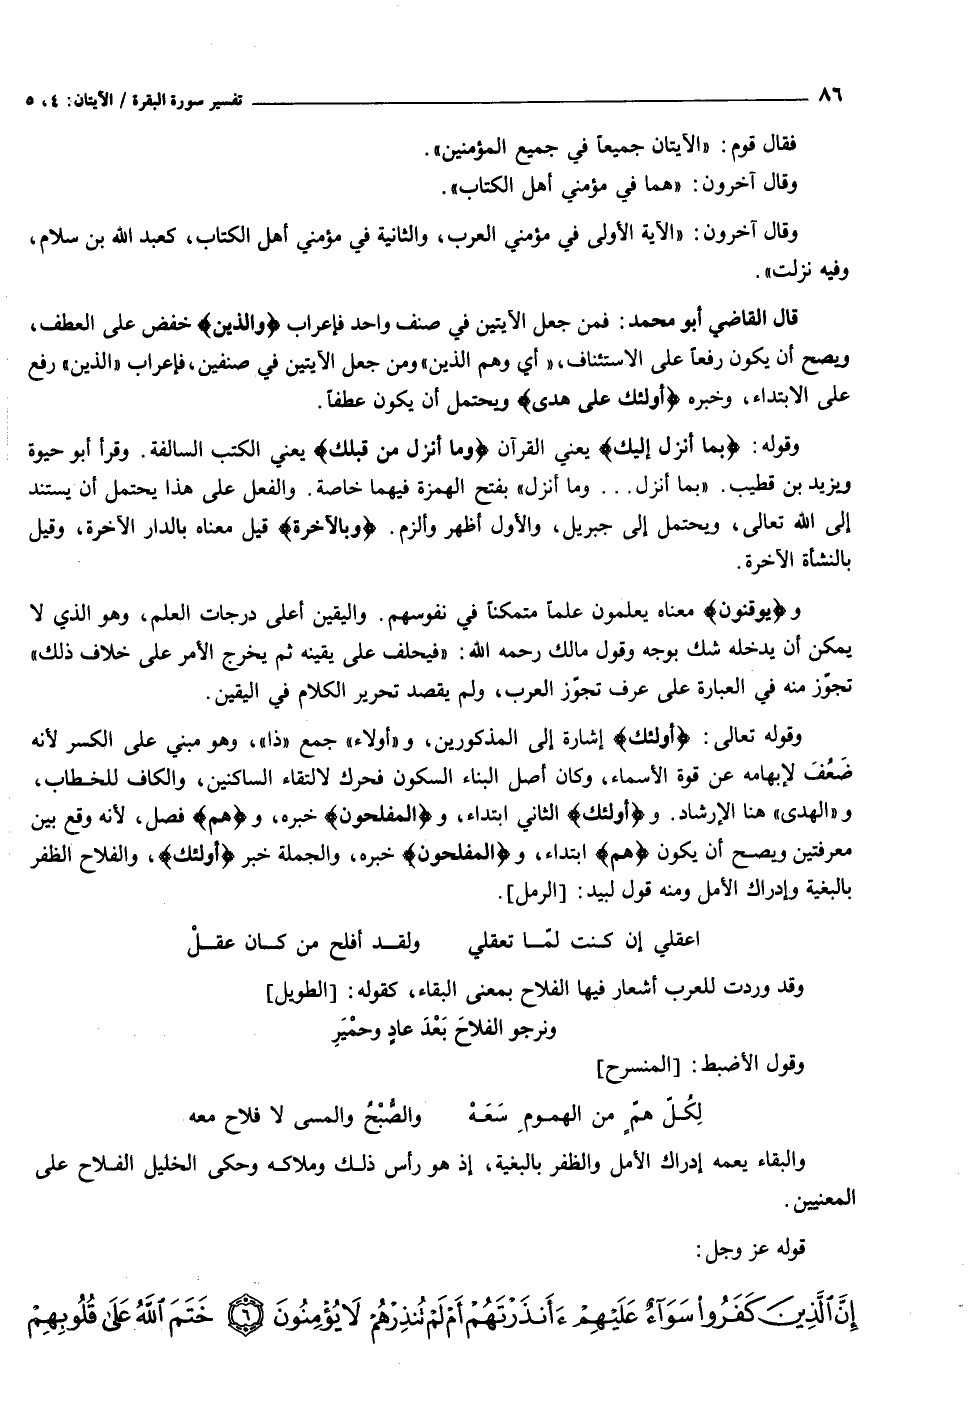 ٨٦ تفسير سورة البقرة / الآيتان: ٤، ٥
فقال قوم: «الآيتان جميعاً في جميع المؤمنين».
وقال آخرون: «هما في مؤمني أهل الكتاب».
وقال آخرون: «الآية الأولى في مؤمني العرب، والثانية في مؤمني أهل الكتاب، كعبد الله بن سلام،
وفيه نزلت».
قال القاضي أبو محمد: فمن جعل الآيتين في صنف واحد فإعراب ﴿والذين﴾ خفض على العطف،
ويصح أن يكون رفعاً على الاستئناف،« أي وهم الذين» ومن جعل الآيتين في صنفين، فإعراب «الذين» رفع
على الابتداء، وخبره ﴿أولئك على هدى﴾ ويحتمل أن يكون عطفاً.
وقوله: ﴿بما أنزل إليك﴾ يعني القرآن ﴿وما أنزل من قبلك﴾ يعني الكتب السالفة. وقرأ أبو حيوة
ويزيد بن قطيب. «بما أنزل... وما أنزل» بفتح الهمزة فيهما خاصة. والفعل على هذا يحتمل أن يستند
إلى الله تعالى، ويحتمل إلى جبريل، والأول أظهر وألزم. ﴿وبالآخرة﴾ قيل معناه بالدار الآخرة، وقيل
بالنشأة الآخرة.
و ﴿يوقنون﴾ معناه يعلمون علماً متمكناً في نفوسهم. واليقين أعلى درجات العلم، وهو الذي لا
يمكن أن يدخله شك بوجه وقول مالك رحمه الله: «فيحلف على يقينه ثم يخرج الأمر على خلاف ذلك»
تجوّز منه في العبارة على عرف تجوّز العرب، ولم يقصد تحرير الكلام في اليقين.
وقوله تعالى: ﴿أولئك﴾ إشارة إلى المذكورين، و «أولاء» جمع «ذا»، وهو مبني على الكسر لأنه
ضَعُفَ لإبهامه عن قوة الأسماء، وكان أصل البناء السكون فحرك لالتقاء الساكنين، والكاف للخطاب،
و «الهدى» هنا الإرشاد. و ﴿أولئك﴾ الثاني ابتداء، و ﴿المفلحون﴾ خبره، و ﴿هم﴾ فصل، لأنه وقع بين
معرفتين ويصح أن يكون ﴿هم﴾ ابتداء، و ﴿المفلحون﴾ خبره، والجملة خبر ﴿أولئك﴾، والفلاح الظفر
بالبغية وإدراك الأمل ومنه قول لبيد: [الرمل].
اعقلي إن كنت لمّا تعقلي ولقد أفلح من كان عقلْ
وقد وردت للعرب أشعار فيها الفلاح بمعنى البقاء، كقوله: [الطويل]
ونرجو الفلاحَ بَعْدَ عادٍ وحمْيَرِ
وقول الأضبط: [المنسرح]
لِكُلّ همّ من الهمومِ سَعَهْ والصُّبْحُ والمسى لا فلاح معه
والبقاء يعمه إدراك الأمل والظفر بالبغية، إذ هو رأس ذلك وملاكه وحكى الخليل الفلاح على
المعنيين.
قوله عز وجل:
إِنَّ ٱلَّذِينَ كَفَرُوا۟ سَوَآءٌ عَلَيْهِمْ ءَأَنذَرْتَهُمْ أَمْ لَمْ تُنذِرْهُمْ لَا يُؤْمِنُونَ ﴿٦﴾ خَتَمَ ٱللَّهُ عَلَىٰ قُلُوبِهِمْ